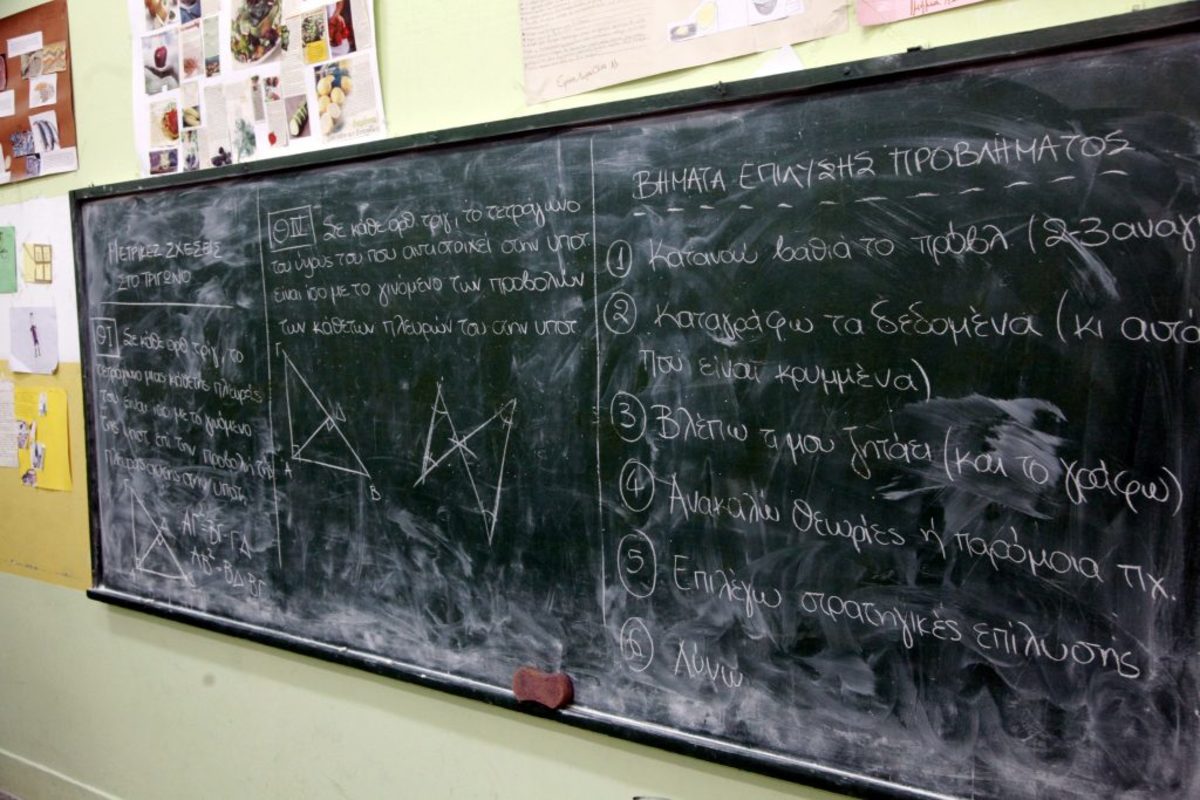 ΜΕΤΡΙΚΕΣ ΣΧΕΣΕΙΣ
ΣΤΟ ΤΡΙΓΩΝΟ
ΘΙ Σε κάθε ορθ τριγ, το
τετράγωνο μιας κάθετης πλευράς
του είναι ίσο με το γινόμενο
της υποτ. επί την προβολή της
πλευράς αυτής στην υποτ.
Γ
ΑΓ²=ΒΓ·ΓΔ
ΑΒ²=ΒΔ·ΒΓ
ΘΙΙ Σε κάθε ορθ. τριγ., το τετράγωνο
του ύψους του που αντιστοιχεί στην υποτ.
είναι ίσο με το γινόμενο των προβολών
των κάθετων πλευρών του στην υποτ.
Γ
Δ
Α
Β
ΒΗΜΑΤΑ ΕΠΙΛΥΣΗΣ ΠΡΟΒΛΗΜΑΤΟΣ
1 Κατανοώ βαθιά το πρόβλ (2-3 αναγ
2 Καταγράφω τα δεδομένα (κι αυτά
που είναι κρυμμένα)
3 Βλέπω τι μου ζητάει (και το γράφω)
4 Ανακαλώ θεωρίες ή παρόμοια πχ.
5 Επιλέγω στρατηγικές επίλυσης
6 Λύνω